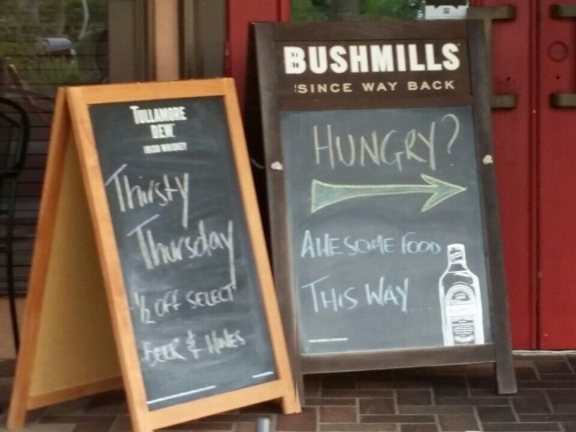 TULLAMORE
DEW
IRISH WHISKEY
Thirsty
Thursday
1/2 OFF SELECT
BEER & WINES
BUSHMILLS
SINCE WAY BACK
HUNGRY?
AWESOME FOOD
THIS WAY...